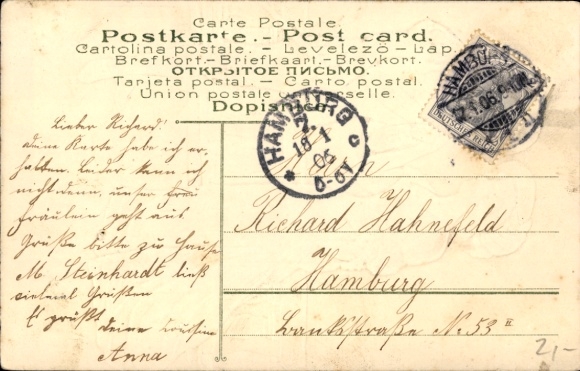 Carte Postale.
Postkarte. - Post card.
Cartolina postale. - Levelező - Lap.
Brefkort. - Briefkaart. - Brevkort.
ОТКРЫТОЕ ПИСЬМО.
Tarjeta postal. - Carte postal.
Union postale universelle.
Dopisnica.
HAMBURG
18 1
06
6-6 N
HAMBURG
17.1.06.
DEUTSCHES REICH
Lieber Richard!
deine Karte habe ich er,
halten. Leider kann ich
nicht denn, unser
Fräulein geht aus
Grüße bitte zu Hause
M. Steinhardt ließ
vielmal Grüßen
Es grüßt
deine
Anna
Richard Hahnefeld
Hamburg
Banksstraße No. 53 II
21,-